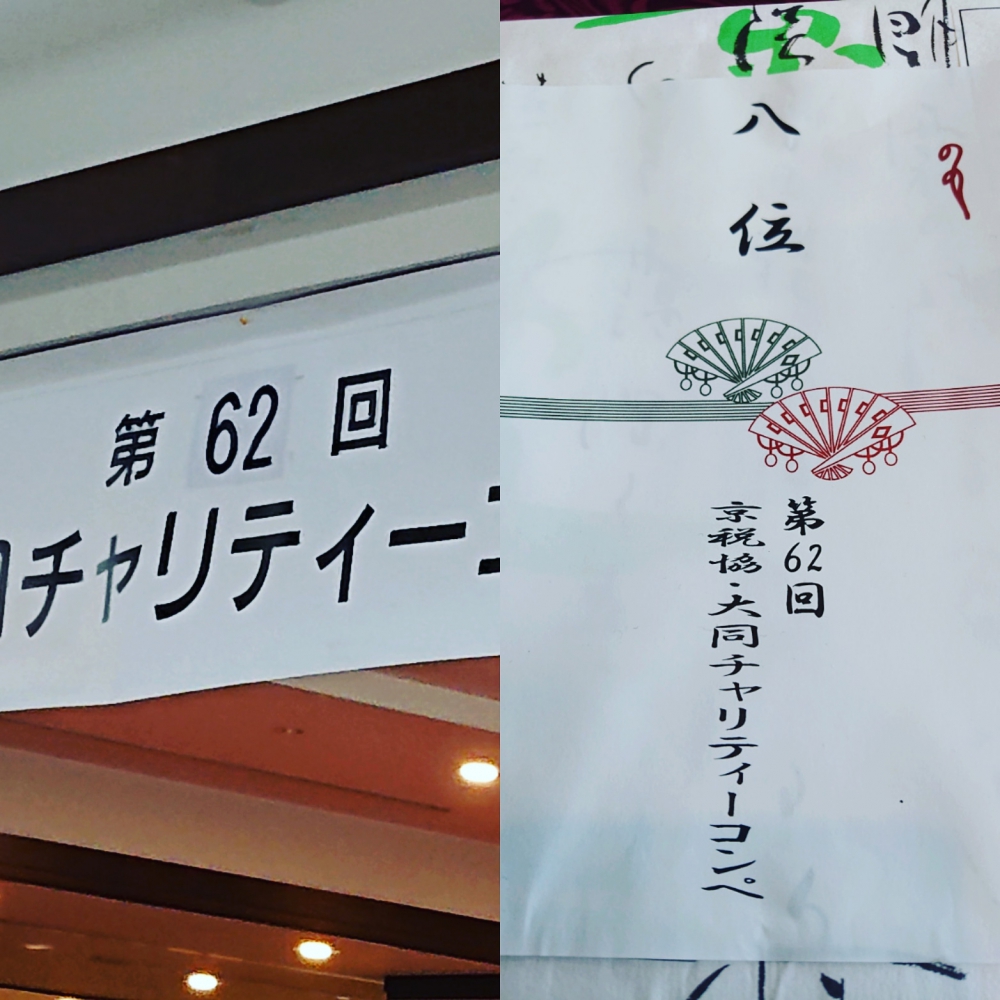 第62回
同チャリティーコ
八位
第62回
京税協・大同チャリティーコンペ